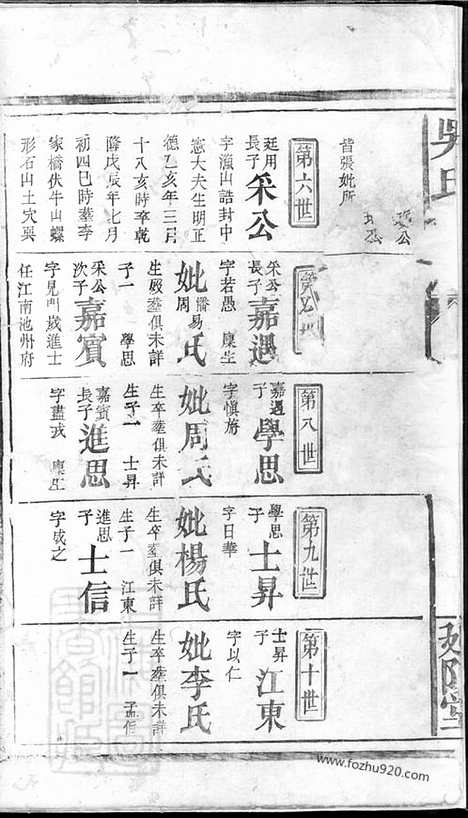 皆張妣所
第六世
廷用
長子
采公
字漁山誥封中
憲大夫生明正
德乙亥年三月
十八亥時卒乾
隆戊辰年七月
初四巳時塟李
家橋伏牛山螺
形石山土穴㢲
采公
長子
嘉遇
字若愚 廩生
妣潘易氏
周
生殁塟俱未詳
子一 學思
采公
次子
嘉賓
字見門歲進士
任江南池州府
第八世
嘉遇
子
學思
字慎旃
妣周氏
生卒塟俱未詳
生子一 士昇
嘉賓
長子
進思
字盡我 廩生
第九世
學思
子
士昇
字日華
妣楊氏
生卒塟俱未詳
生子一 江東
進思
子
士信
字成之
第十世
士昇
子
江東
字以仁
妣李氏
生卒塟俱未詳
生子一
www.fozhu920.com